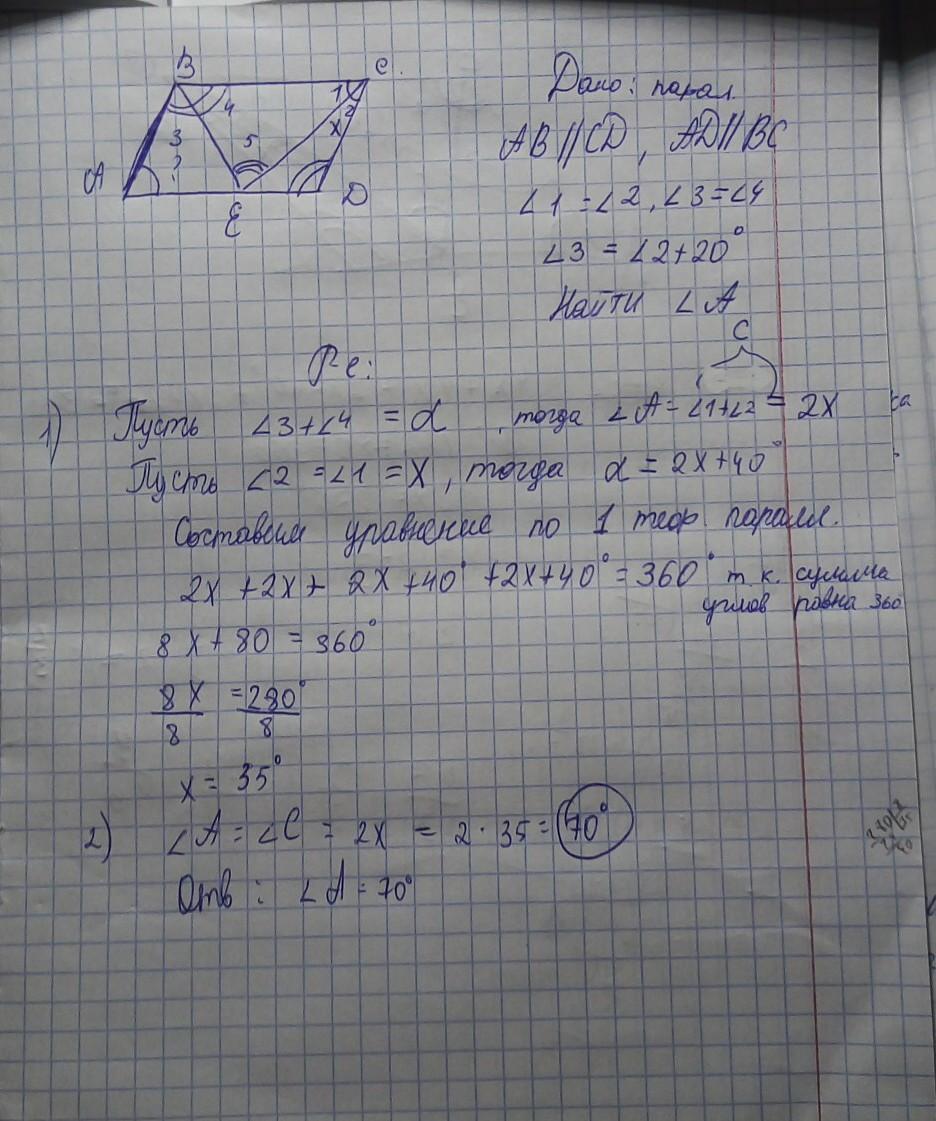 B
C
1
4
2
x
3
5
?
A
E
D
Дано: парал.
AB || CD, AD || BC
∠1 = ∠2, ∠3 = ∠4
∠3 = ∠2 + 20°
Найти ∠A
Ре:
C
1) Пусть ∠3 + ∠4 = α, тогда ∠A = ∠1 + ∠2 = 2x
Пусть ∠2 = ∠1 = x, тогда α = 2x + 40°
Составим уравнение по 1 теор. паралл.
2x + 2x + 2x + 40° + 2x + 40° = 360° т.к. сумма
углов равна 360
8x + 80 = 360°
8x = 280°
8 8
x = 35°
2) ∠A = ∠C = 2x = 2 · 35 = 70°
Отв: ∠A = 70°